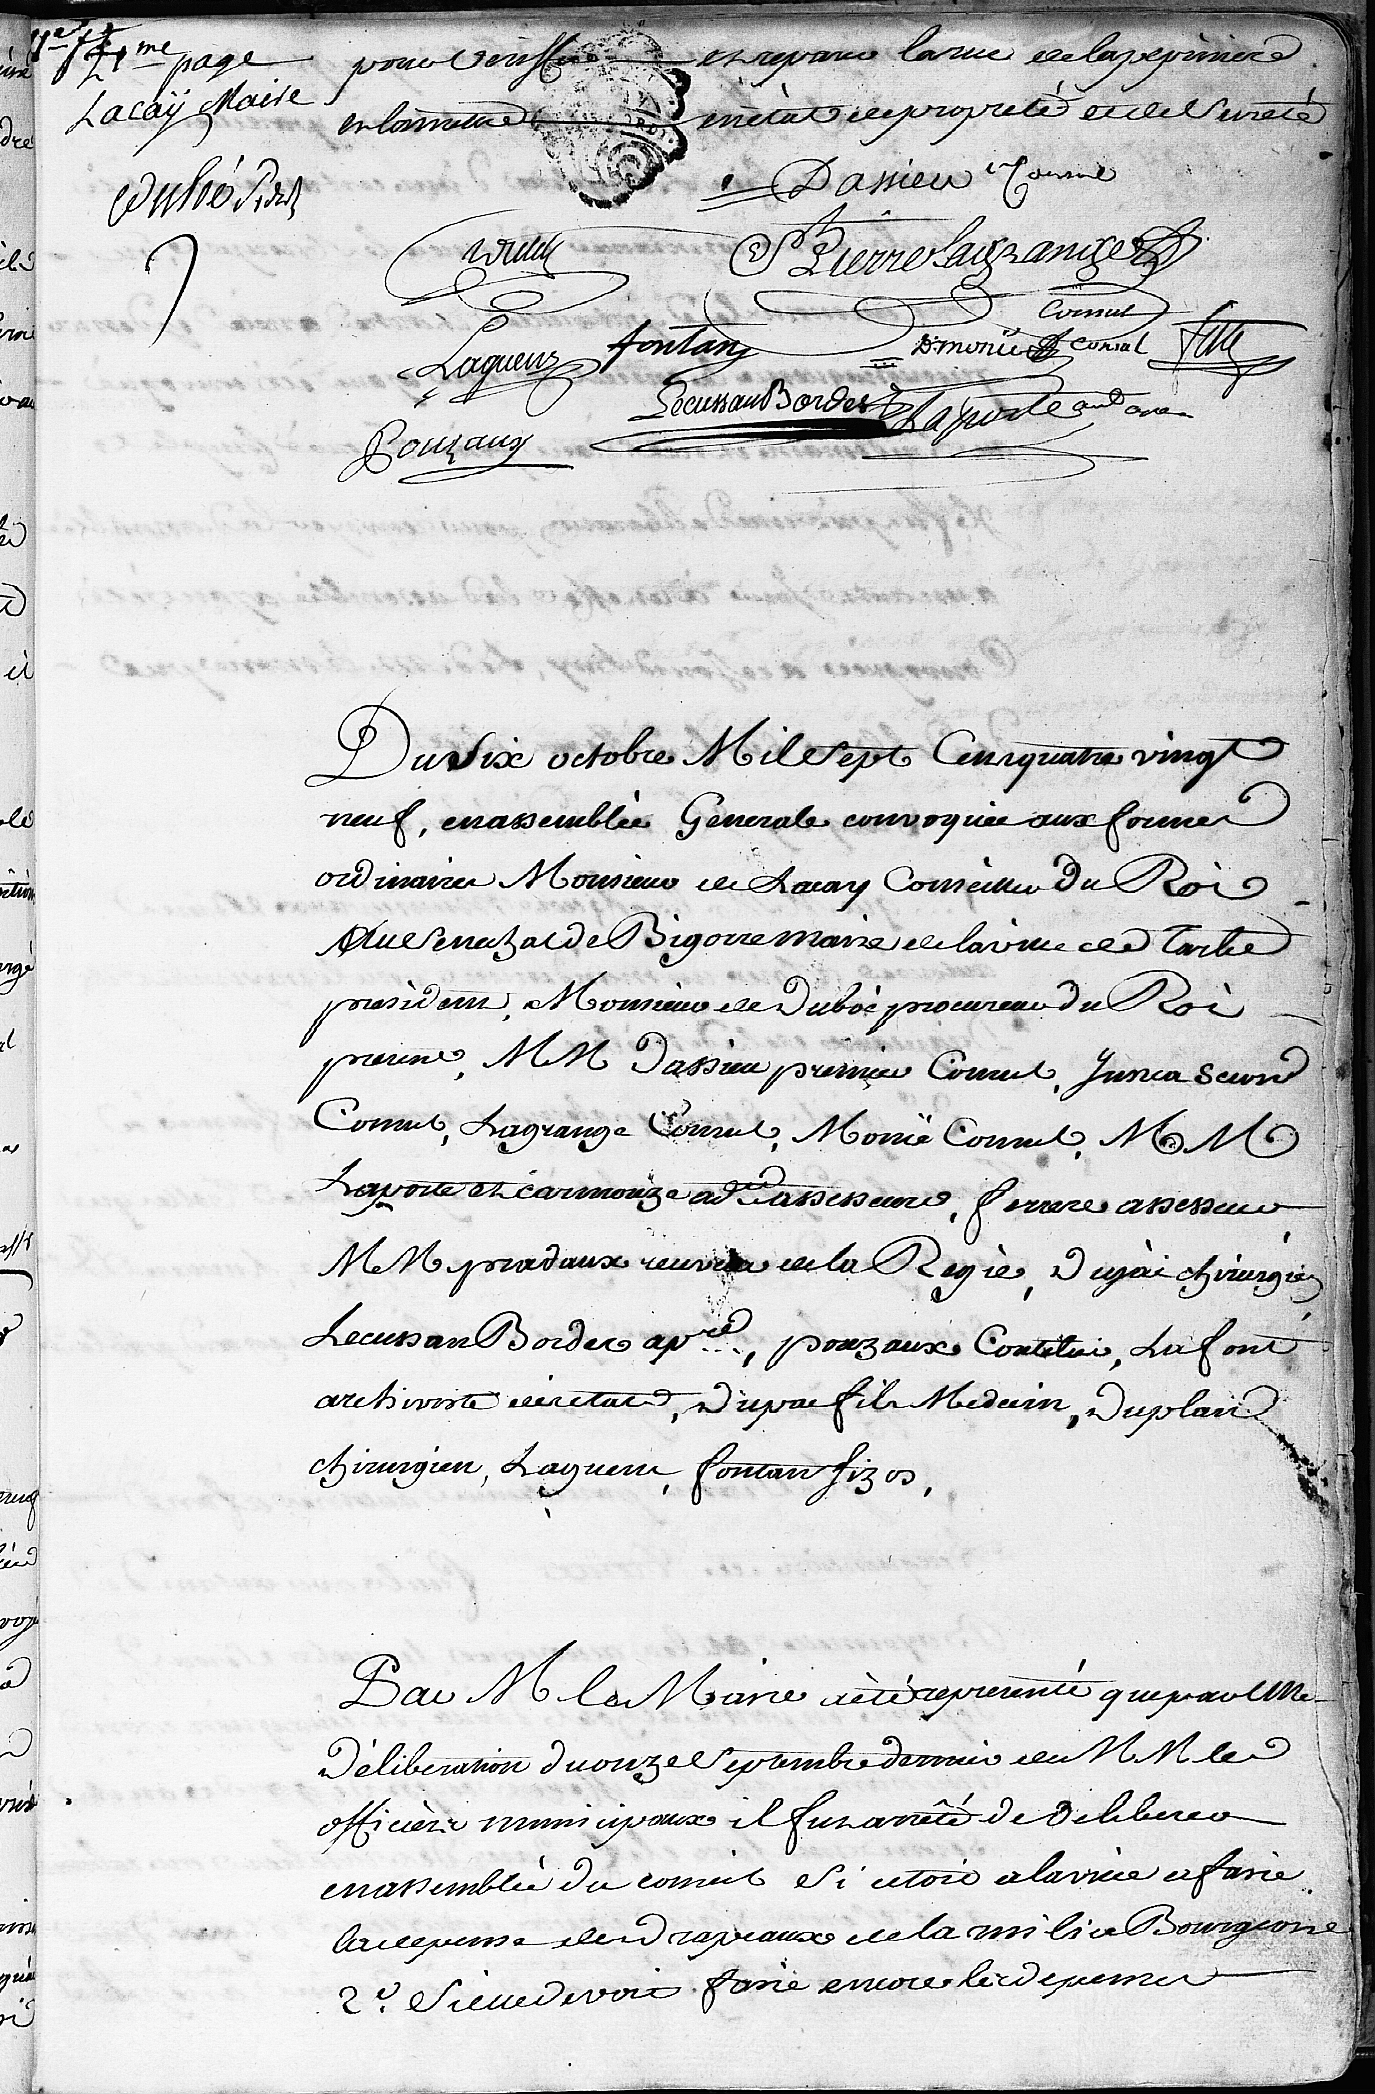 21me page
Lacaÿ Maire
Dubóé
pour et reparer la rue de la pepiniere
en la mettre en état de propreté et de sureté
Dassieu 1er Consul
St Pierre Lagrange
Consul
Lagueus fontan Dmonië consul
Lecussan Bordes Laporte
Pouzaux
Du Six octobre Mil Sept Cens quatre vingt
neuf, en assemblée Generale convoquée aux formes
ordinaires Monsieur de Lacay Conseiller Du Roi
au Senechal de Bigorre Maire de la ville de Tarbe
president, Monsieur de Duboé procureur du Roi
presens, M M Dassieu premier Consul, Junca Second
Consul, Lagrange Consul, Monië Consul, M M
Laporte et Carmouze assesseurs, ferrere assesseur
M M pradaux de la Regie, Dujai chirurgien
Lecussan Bordes apre, pouzaux Contelier, Lafont
archiviste des etats, Dupac fils Medecin, Duplan
chirurgien, Laguens, fontan fizos,
Par M le Maire a été representé que par une
Déliberation du onze Septembre dernier de M M les
officiers municipaux il fut arrêté de deliberer
en assemblée du conseil Si cetoit a la ville a faire
la depense des Drapeaux de la milice Bourgeoise
2°. Si elle devoit faire encore les depenses